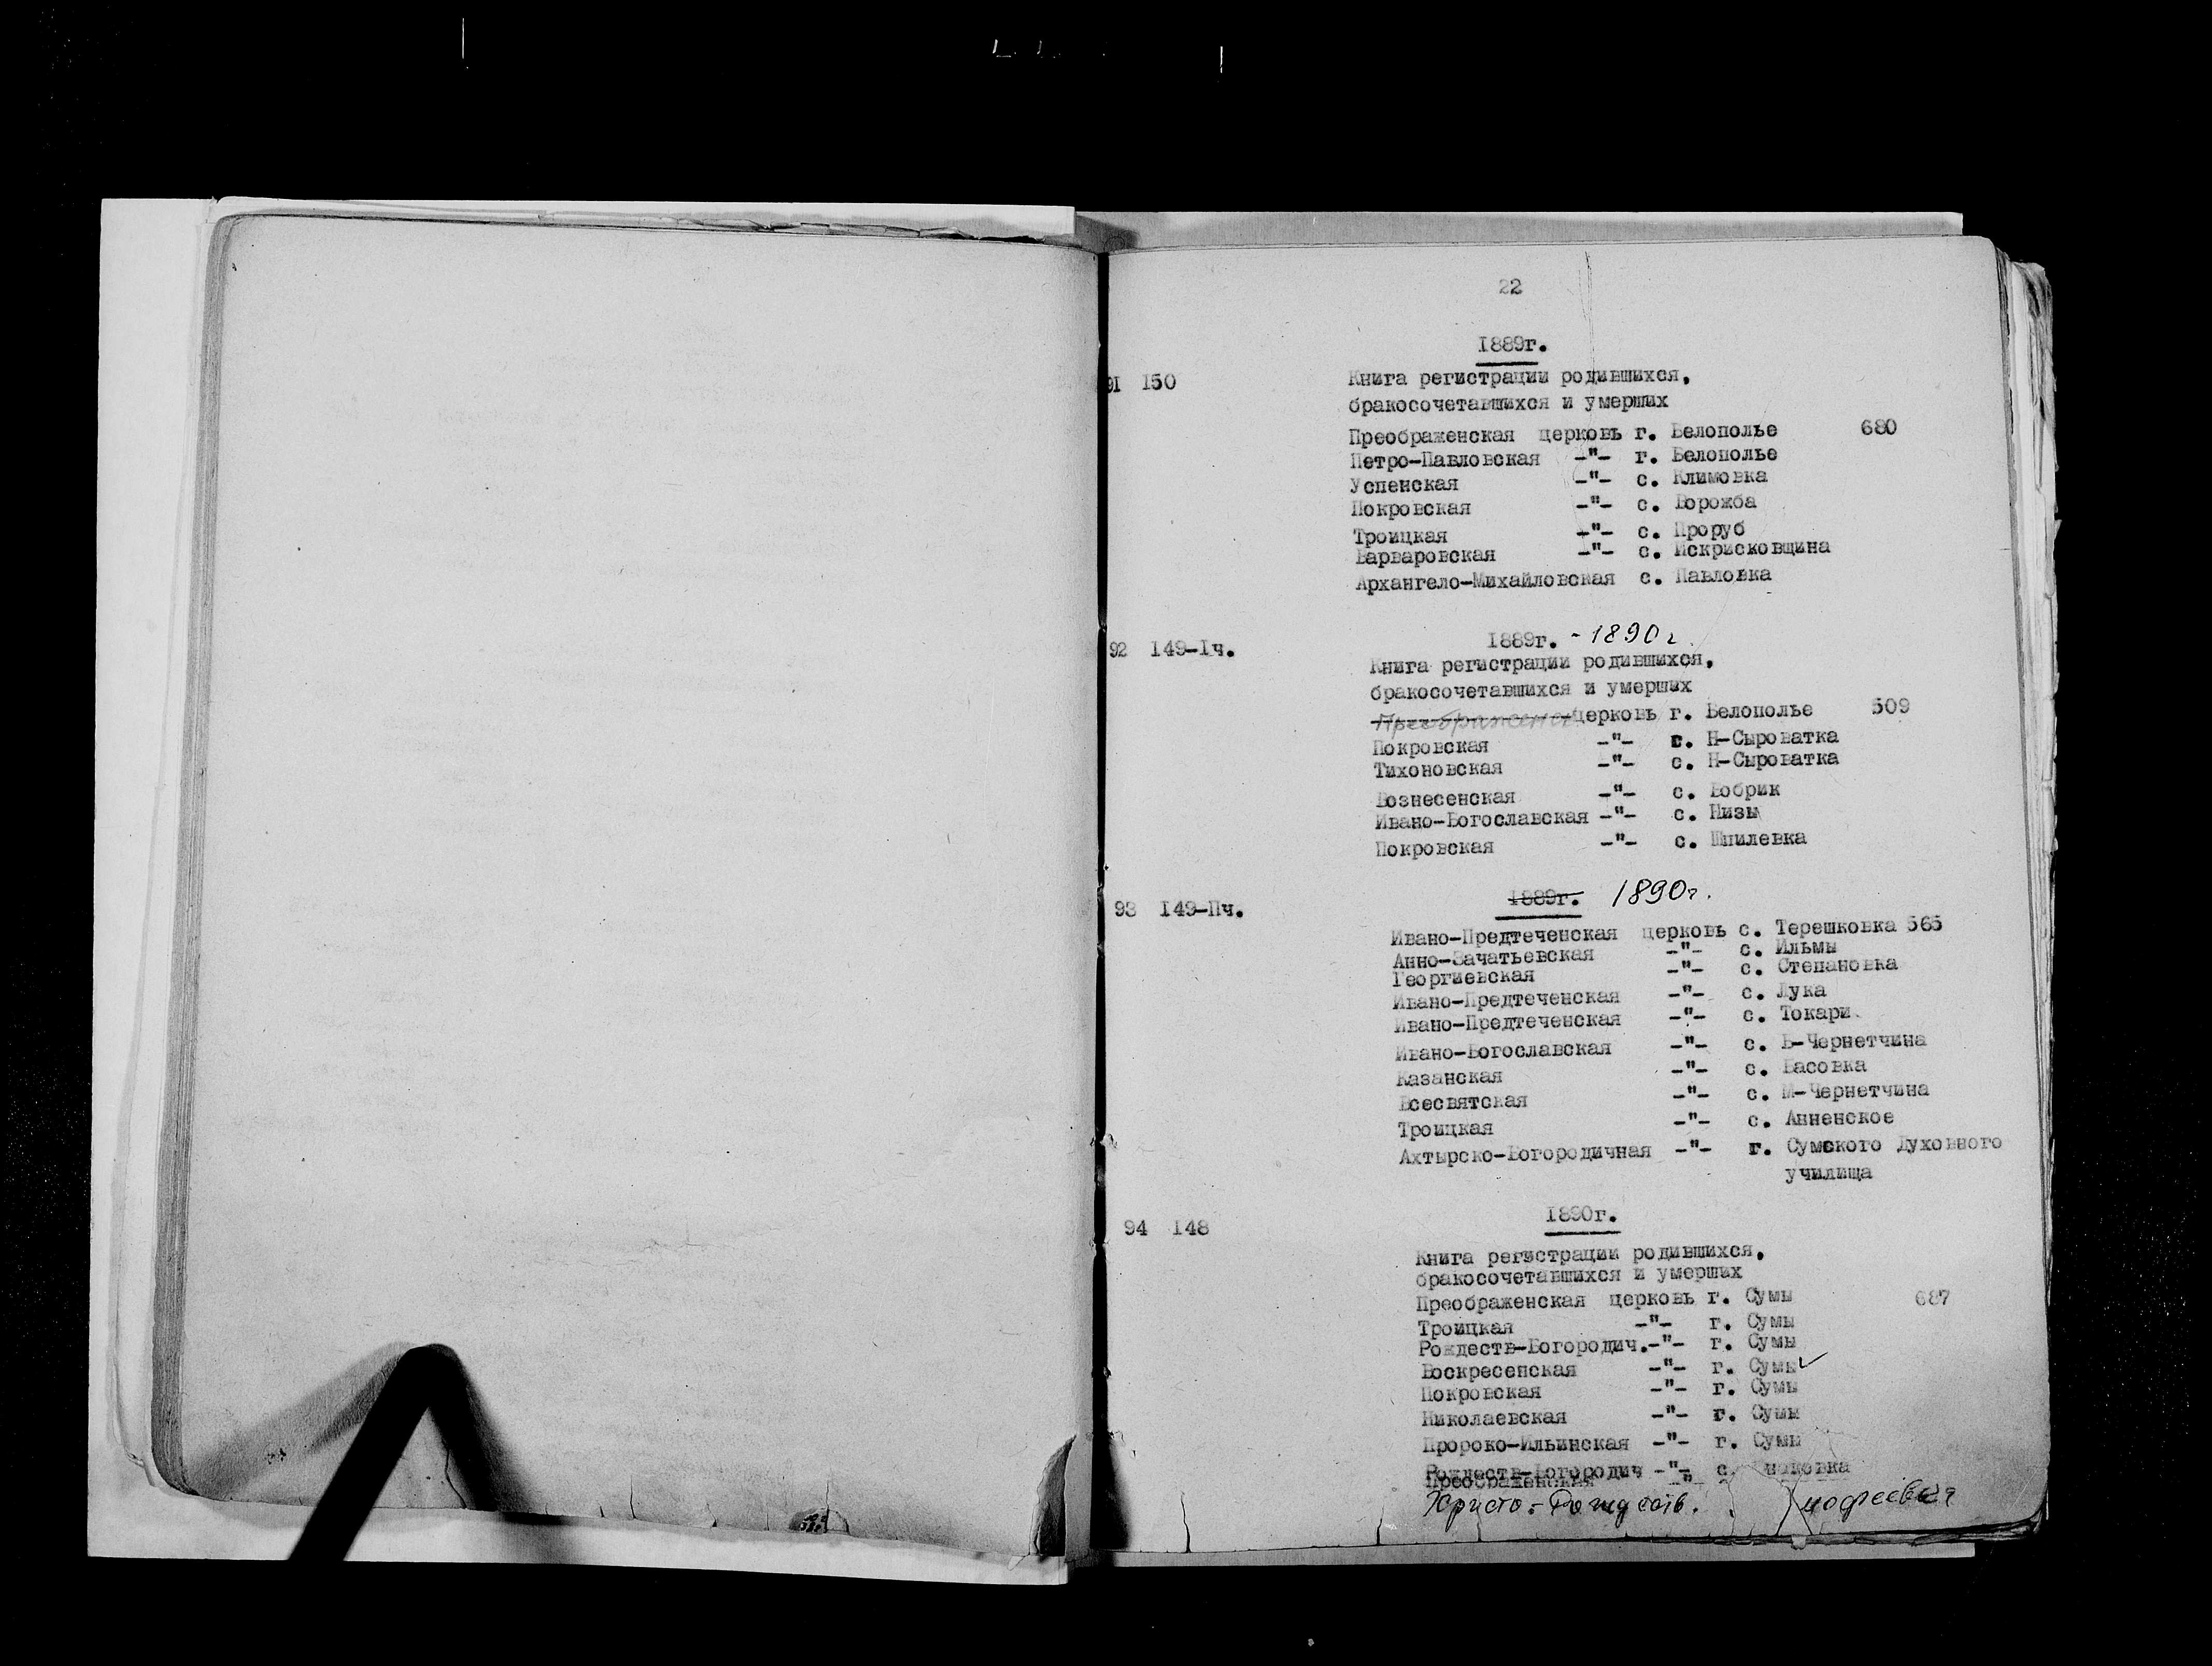 22
1889г.
91 150 Книга регистрации родившихся,
бракосочетавшихся и умерших
Преображенская церковь г. Белополье 680
Петро-Павловская -"- г. Белополье
Успенская -"- с. Климовка
Покровская -"- с. Ворожба
Троицкая -"- с. Проруб
Варваровская -"- с. Искрисковщина
Архангело-Михайловская с. Павловка
1889г. - 1890г.
92 149-Iч.
Книга регистрации родившихся,
бракосочетавшихся и умерших
церковь г. Белополье 509
Покровская -"- с. Н-Сыроватка
Тихоновская -"- с. Н-Сыроватка
Вознесенская -"- с. Бобрик
Ивано-Богославская -"- с. Низы
Покровская -"- с. Шпилевка
1889г. 1890г.
93 149-Пч.
Ивано-Предтеченская церковь с. Терешковка 565
Анно-Зачатьевская -"- с. Ильмы
Георгиевская -"- с. Степановка
Ивано-Предтеченская -"- с. Лука
Ивано-Предтеченская -"- с. Токари
Ивано-Богославская -"- с. Б-Чернетчина
Казанская -"- с. Басовка
Всесвятская -"- с. М-Чернетчина
Троицкая -"- с. Анненское
Ахтырско-Богородичная -"- г. Сумского Духовного
училища
1890г.
94 148
Книга регистрации родившихся,
бракосочетавшихся и умерших
Преображенская церковь г. Сумы 687
Троицкая -"- г. Сумы
Рождеств-Богородич.-"- г. Сумы
Воскресенская -"- г. Сумы
Покровская -"- г. Сумы
Николаевская -"- г. Сумы
Пророко-Ильинская -"- г. Сумы
Рождеств-Богородич -"- с.
Преображенская -"-
Христо-Рождеств.